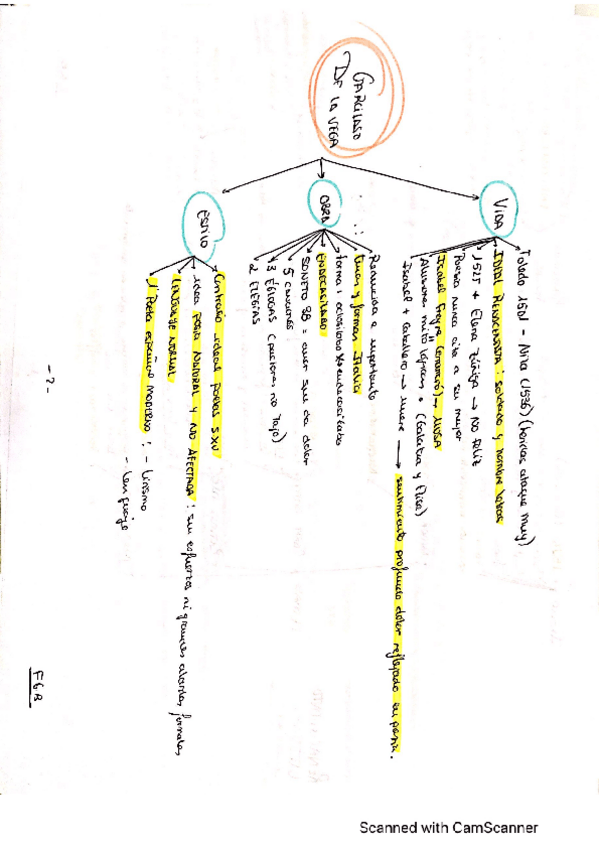 GARCILASO
DE LA VEGA
VIDA
Toledo 1501 - Niza (1536) (heridas ataque muy)
IDEAL RENACENTISTA: soldado y hombre letras
1525 + Elena Zúñiga → No feliz
Poesía nunca cita a su mujer
Isabel Freyre (enamoró) → MUSA
Alusiones mitológicas + (Galatea y Elisa)
Isabel + Caballero → muere → sentimiento profundo dolor reflejado en poesía.
OBRA
Reducida e importante
Temas y formas Italia
forma: octosílabo x endecasílabo
ENDECASÍLABO
SONETO 38 = amor que da dolor
5 canciones
3 ÉGLOGAS (pastores río Tajo)
2 ELEGÍAS
ESTILO
Contrario ideas poetas S XV
idea POESÍA NATURAL Y NO AFECTADA: sin esfuerzos ni grandes alardes formales
LENGUAJE NORMAL
1º Poeta español MODERNO: - Lirismo
- Lenguaje
- 7 -
Scanned with CamScanner